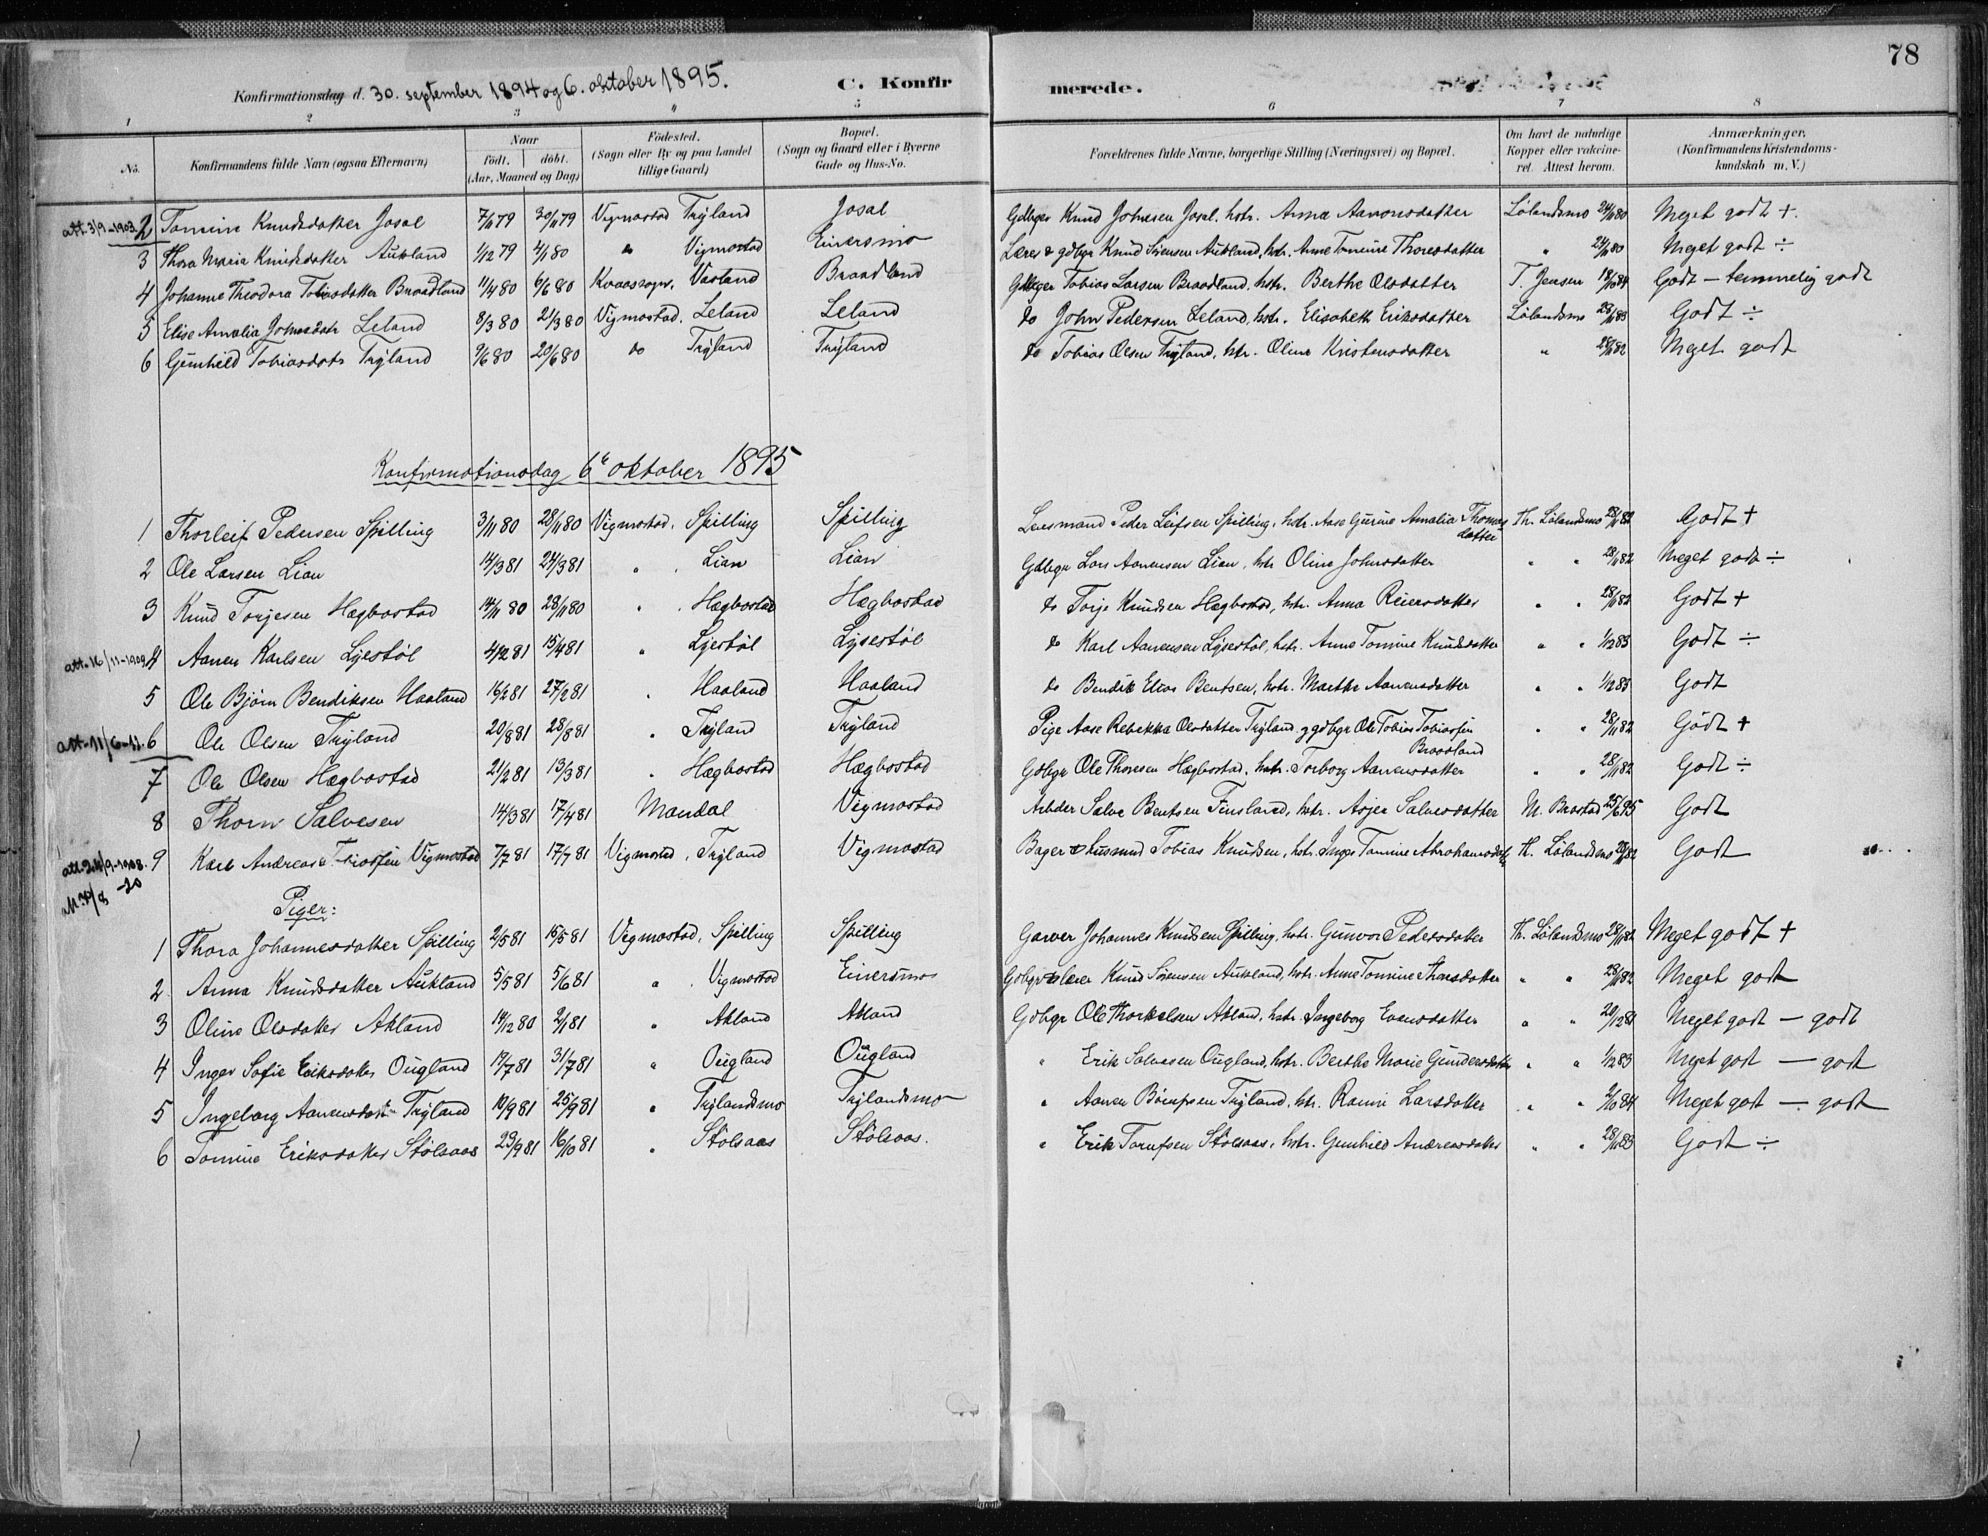 78
Konfirmationsdag d. 30. september 1894 og 6. oktober 1895. C. Konfirmerede.
1 2 3 4 5 6 7 8
No. Konfirmandens fulde Navn (ogsaa Efternavn) Naar födt. döbt. (Aar, Maaned og Dag) Födested. (Sogn eller By og paa Landet tillige Gaard) Bopæl. (Sogn og Gaard eller i Byerne Gade og Hus-No. Forældrenes fulde Navne, borgerlige Stilling (Næringsvei) og Bopæl. Om havt de naturlige Kopper eller vakcineret. Attest herom. Anmærkninger. (Konfirmandens Kristendomskundskab m. V.)
att. 3/9-1903. 2 Tomine Knudsdatter Josal 7/11 79 30/11 79 Vigmostad Tryland Josal Gdbger Knud Johnsen Josal, hstr. Anna Aanonsdatter Lölandsmo 24/11 80 Meget godt +.
3 Thora Maria Knudsdatter Aukland 1/12 79 4/1 80 " Vigmostad Einersmo Lærer & gdbgr Knud Sörensen Aukland, hstr. Anne Tomine Thoresdatter " 24/11 80 Meget godt ÷
4 Johanne Theodora Tobiasdatter Braadland 11/4 80 6/6 80 Kvaassogn, Vasland Braadland Gdbger Tobias Larsen Braadland, hstr. Berthe Olsdatter T. Jensen 18/10 84 Godt — temmelig godt
5 Elise Amalia Johnsdatr Leland 8/3 80 21/3 80 Vigmostad. Leland Leland do John Pedersen Leland, hstr. Elisabeth Eriksdatter Lölandsmo 28/11 83 Godt ÷
6 Gunhild Tobiasdatr Tryland 9/6 80 20/6 80 do Tryland Tryland do Tobias Olsen Tryland, hstr. Oline Kristensdatter " 28/11 82 Meget godt
Konfirmationsdag 6te oktober 1895
1 Thorleif Pedersen Spilling 3/11 80 28/11 80 Vigmostad, Spilling Spilling Lensmand Peder Leifsen Spilling, hstr. Aase Gurine Amalia Thomasdatter Th. Lölandsmo 28/11 82 Godt +
2 Ole Larsen Lian 14/3 81 24/3 81 " " Lian Lian Gdbgr Lars Aanensen Lian, hstr Oline Johnsdatter " " 28/11 82 Meget godt ÷
3 Knud Torjesen Hægbostad 14/11 80 28/11 80 " " Hægbostad Hægbostad do Torje Knudsen Hægbostad, hstr. Anna Reiersdatter " " 28/11 82 Godt +
att. 16/11-1909. 4 Aanen Karlsen Lyestöl 4/2 81 15/4 81 " Lyestöl Lysestöl do Karl Aanensen Lysestöl, hstr. Anne Tomine Knudsdatter " " 1/12 83 Godt ÷
5 Ole Bjórn Bendiksen Haaland 16/2 81 27/2 81 " Haaland Haaland do Bendik Elias Bentsen, hstr. Marthe Aanensdatter " " 1/12 83 Godt
att. 11/6-11. 6 Ole Olsen Tryland 20/8 81 28/8 81 " Tryland Tryland Pige Aase Rebekka Olsdatter Tryland og gdbgr Ole Tobias Tobiassen Braadland " " 28/11 82 Godt +
7 Ole Olsen Hægbostad 21/2 81 13/3 81 " Hægbostad Hægbostad Gdbgr Ole Thoresen Hægbostad, hstr. Torborg Aanensdatter " " 28/11 82 Godt ÷
8 Thorn Salvesen 14/3 81 17/4 81 Mandal Vigmostad Arbder Salve Bentsen Finsland, hstr. Asjer Salvesdatter M. Brastad 25/6 95 Godt
att. 24/9-1908. 9 Karl Andreas Tobiassen Vigmostad 7/7 81 17/7 81 Vigmostad, Tryland Vigmostad Bager & husmand Tobias Knudsen, hstr. Inger Tomine Abrahamsdatr Th. Lölandsmo 28/11 82 Godt
Piger:
1 Thora Johannesdatter Spilling 2/5 81 15/5 81 Vigmostad, Spilling Spilling Garver Johannes Knudsen Spilling, hstr. Gunvor Pedersdatter Th. Lölandsmo 28/11 82 Meget godt +
2. Anna Knudsdatter Aukland 5/5 81 5/6 81 " . Vigmostad Einersmo Gdbgr & lærer Knud Sörensen Aukland, hstr. Anne Tomine Thoresdatter " " 28/11 82 Meget godt
3 Oline Olsdatter Akland 14/12 80 2/1 81 " Akland Akland Gdbgr Ole Thorkelsen Akland, hstr. Ingeborg Evensdatter " " 20/12 81 Meget godt — godt
4 Inger Sofie Eriksdatter Ougland 19/7 81 31/7 81 " Ougland Ougland " Erik Salvesen Ougland, hstr. Berthe Marie Gundersdatter " " 1/12 83 Meget godt — godt
5 Ingeborg Aanensdatr Tryland 10/9 81 25/9 81 " Trylandsmo Trylandsmo " Aanen Tryland, hstr. Larsdatter " " 84 Meget godt — godt
6 Tomine Eriksdatter Stölsaas 29/9 81 16/10 81 " Stölsaas Stölsaas. " Erik Stölsaas, hstr. Gunhild Andreasdatter " " 28/11 83 Godt ÷